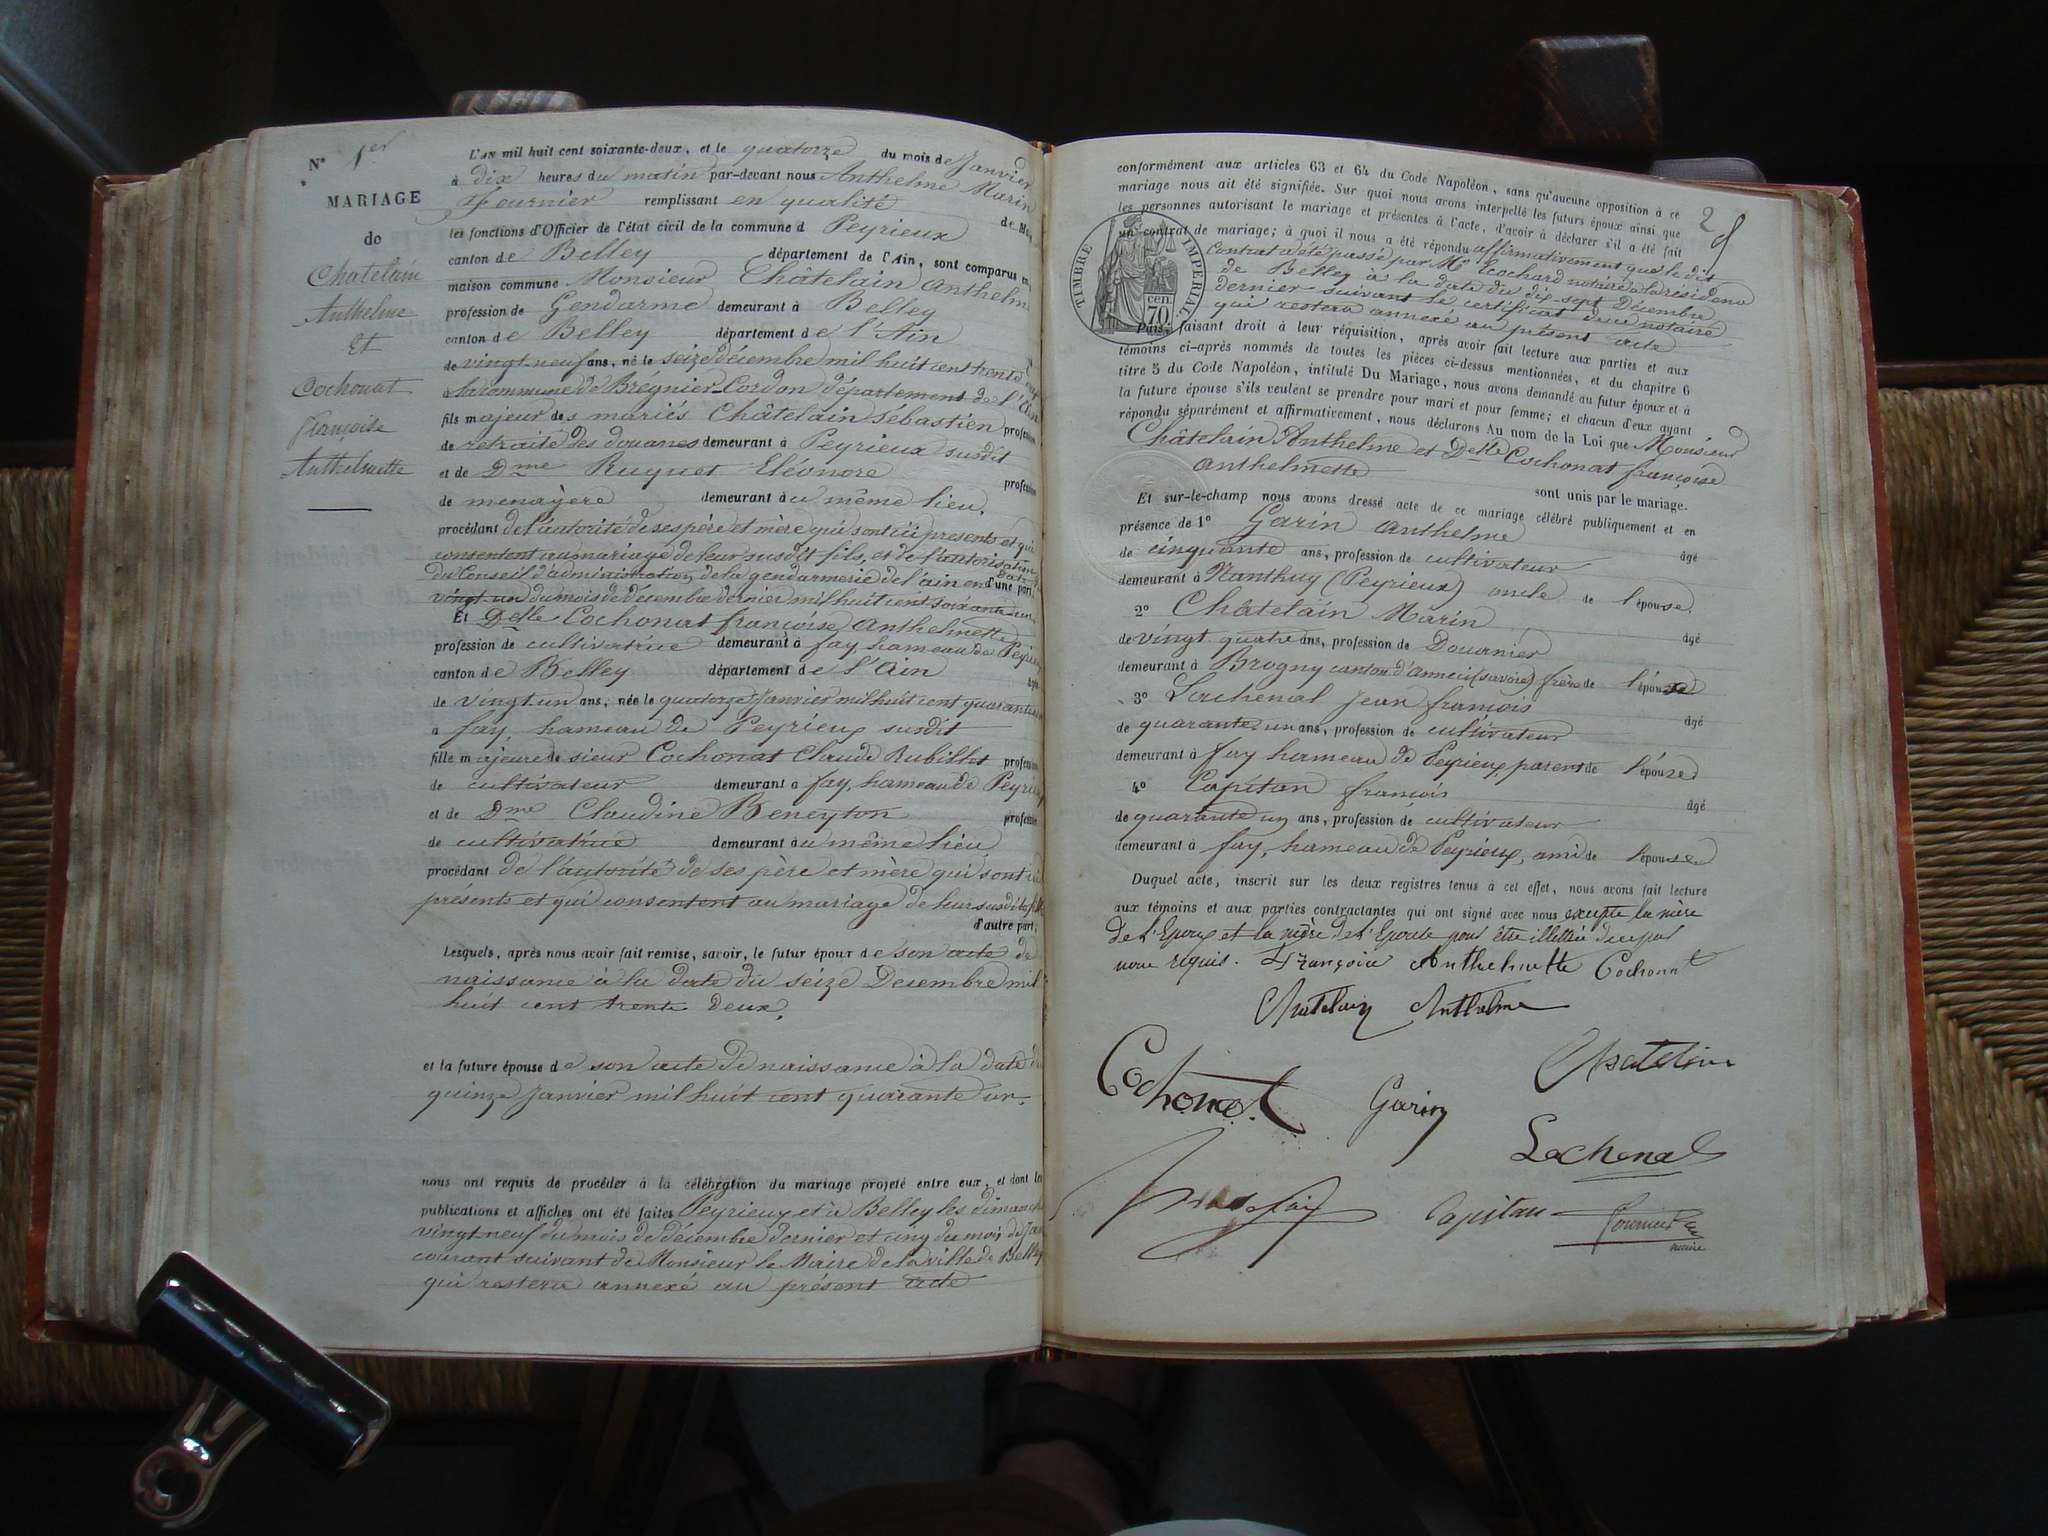 N° 1er
MARIAGE
de
Chatelain
Anthelme
Et
Cochonat
françoise
Anthelmette
L'AN mil huit cent soixante-deux, et le quatorze du mois de Janvier
à dix heures du matin par-devant nous Anthelme Marin
Fournier remplissant en qualité de
les fonctions d'Officier de l'état civil de la commune d Peyrieux
canton de Belley département de l'Ain, sont comparus en
maison commune Monsieur Châtelain Anthelm
profession de Gendarme demeurant à Belley
canton de Belley département de l'Ain
de vingt-neuf ans, né le seize décembre mil huit cent trente
à la commune de Brégnier-Cordon département de l'Ain
fils majeur des mariés Châtelain Sébastien profession
de retraité des douanes demeurant à Peyrieux susdit
et de Dme Ruquet Eléonore profession
de menagère demeurant àu même lieu.
procédant de l'autorité de ses père et mère qui sont ici presents et qui
consentent au mariage de leur susdit fils, et de l'autorisation
du Conseil d'administration de la gendarmerie de l'ain en date d'une part,
vingt un du mois de décembre dernier mil huit cent soixante un
Et Delle Cochonat françoise Anthelmette
profession de cultivatrice demeurant à fay, hameau de Peyrieux
canton de Belley département de l'Ain âgée
de vingt un ans, née le quatorze Janvier mil huit cent quarante
à fay, hameau de Peyrieux susdit
fille majeure de sieur Cochonat Claude Rubillot profession
de cultivateur demeurant à fay, hameau de Peyrieux
et de Dme Claudine Beneyton profession
de cultivatrice demeurant àu même lieu
procédant de l'autorité de ses père et mère qui sont ici
présents et qui consentent au mariage de leur susdite fille
d'autre part;
Lesquels, après nous avoir fait remise, savoir, le futur époux de son acte de
naissance à la date du seize Decembre mil
huit cent trente deux,
et la future épouse de son acte de naissance à la date du
quinze Janvier mil huit cent quarante un.
nous ont requis de procéder à la célébration du mariage projeté entre eux, et dont les
publications et affiches ont été faites Peyrieux et à Belley les dimanche
vingt neuf du mois de décembre dernier et cinq du mois de Jan
courant suivant de Monsieur le Maire de la ville de Belley
qui restera annexé au présent acte
2
conformément aux articles 63 et 64 du Code Napoléon, sans qu'aucune opposition à ce
mariage nous ait été signifiée. Sur quoi nous avons interpellé les futurs époux ainsi que
les personnes autorisant le mariage et présentes à l'acte, d'avoir à déclarer s'il a été fait
un contrat de mariage; à quoi il nous a été répondu affirmativement que le dit
contrat a été passé par Me Cochard notaire à la résidence
de Belley à la date du dix-sept Décembre
dernier suivant le certificat dudit notaire
qui restera annexé au présent acte
TIMBRE IMPERIAL
70 cen.
Puis, faisant droit à leur réquisition, après avoir fait lecture aux parties et aux
témoins ci-après nommés de toutes les pièces ci-dessus mentionnées, et du chapitre 6
titre 5 du Code Napoléon, intitulé Du Mariage, nous avons demandé au futur époux et à
la future épouse s'ils veulent se prendre pour mari et pour femme; et chacun d'eux ayant
répondu séparément et affirmativement, nous déclarons Au nom de la Loi que Monsieur
Châtelain Anthelme et Delle Cochonat françoise
anthelmette sont unis par le mariage.
Et sur-le-champ nous avons dressé acte de ce mariage célébré publiquement et en
présence de 1° Garin Anthelme âgé
de cinquante ans, profession de cultivateur
demeurant à Nanthuy (Peyrieux) oncle de l'épouse.
2° Châtelain Marin âgé
de vingt quatre ans, profession de Douanier
demeurant à Brogny canton d'Anneci (savoie) frère de l'époux
3° Lachenal Jean françois âgé
de quarante un ans, profession de cultivateur
demeurant à fay hameau de Peyrieux parent de l'épouse
4° Capitan françois âgé
de quarante un ans, profession de cultivateur
demeurant à fay, hameau de Peyrieux, ami de l'épouse
Duquel acte, inscrit sur les deux registres tenus à cet effet, nous avons fait lecture
aux témoins et aux parties contractantes qui ont signé avec nous excepté la mère
de l'Epoux et la mère de l'Epouse pour être illettrées de ce par
nous requis. Françoise Anthelmette Cochonat
Chatelain Anthelme
Cochonat Garin Chatelain
Lachenal
Capitan Fournier
maire